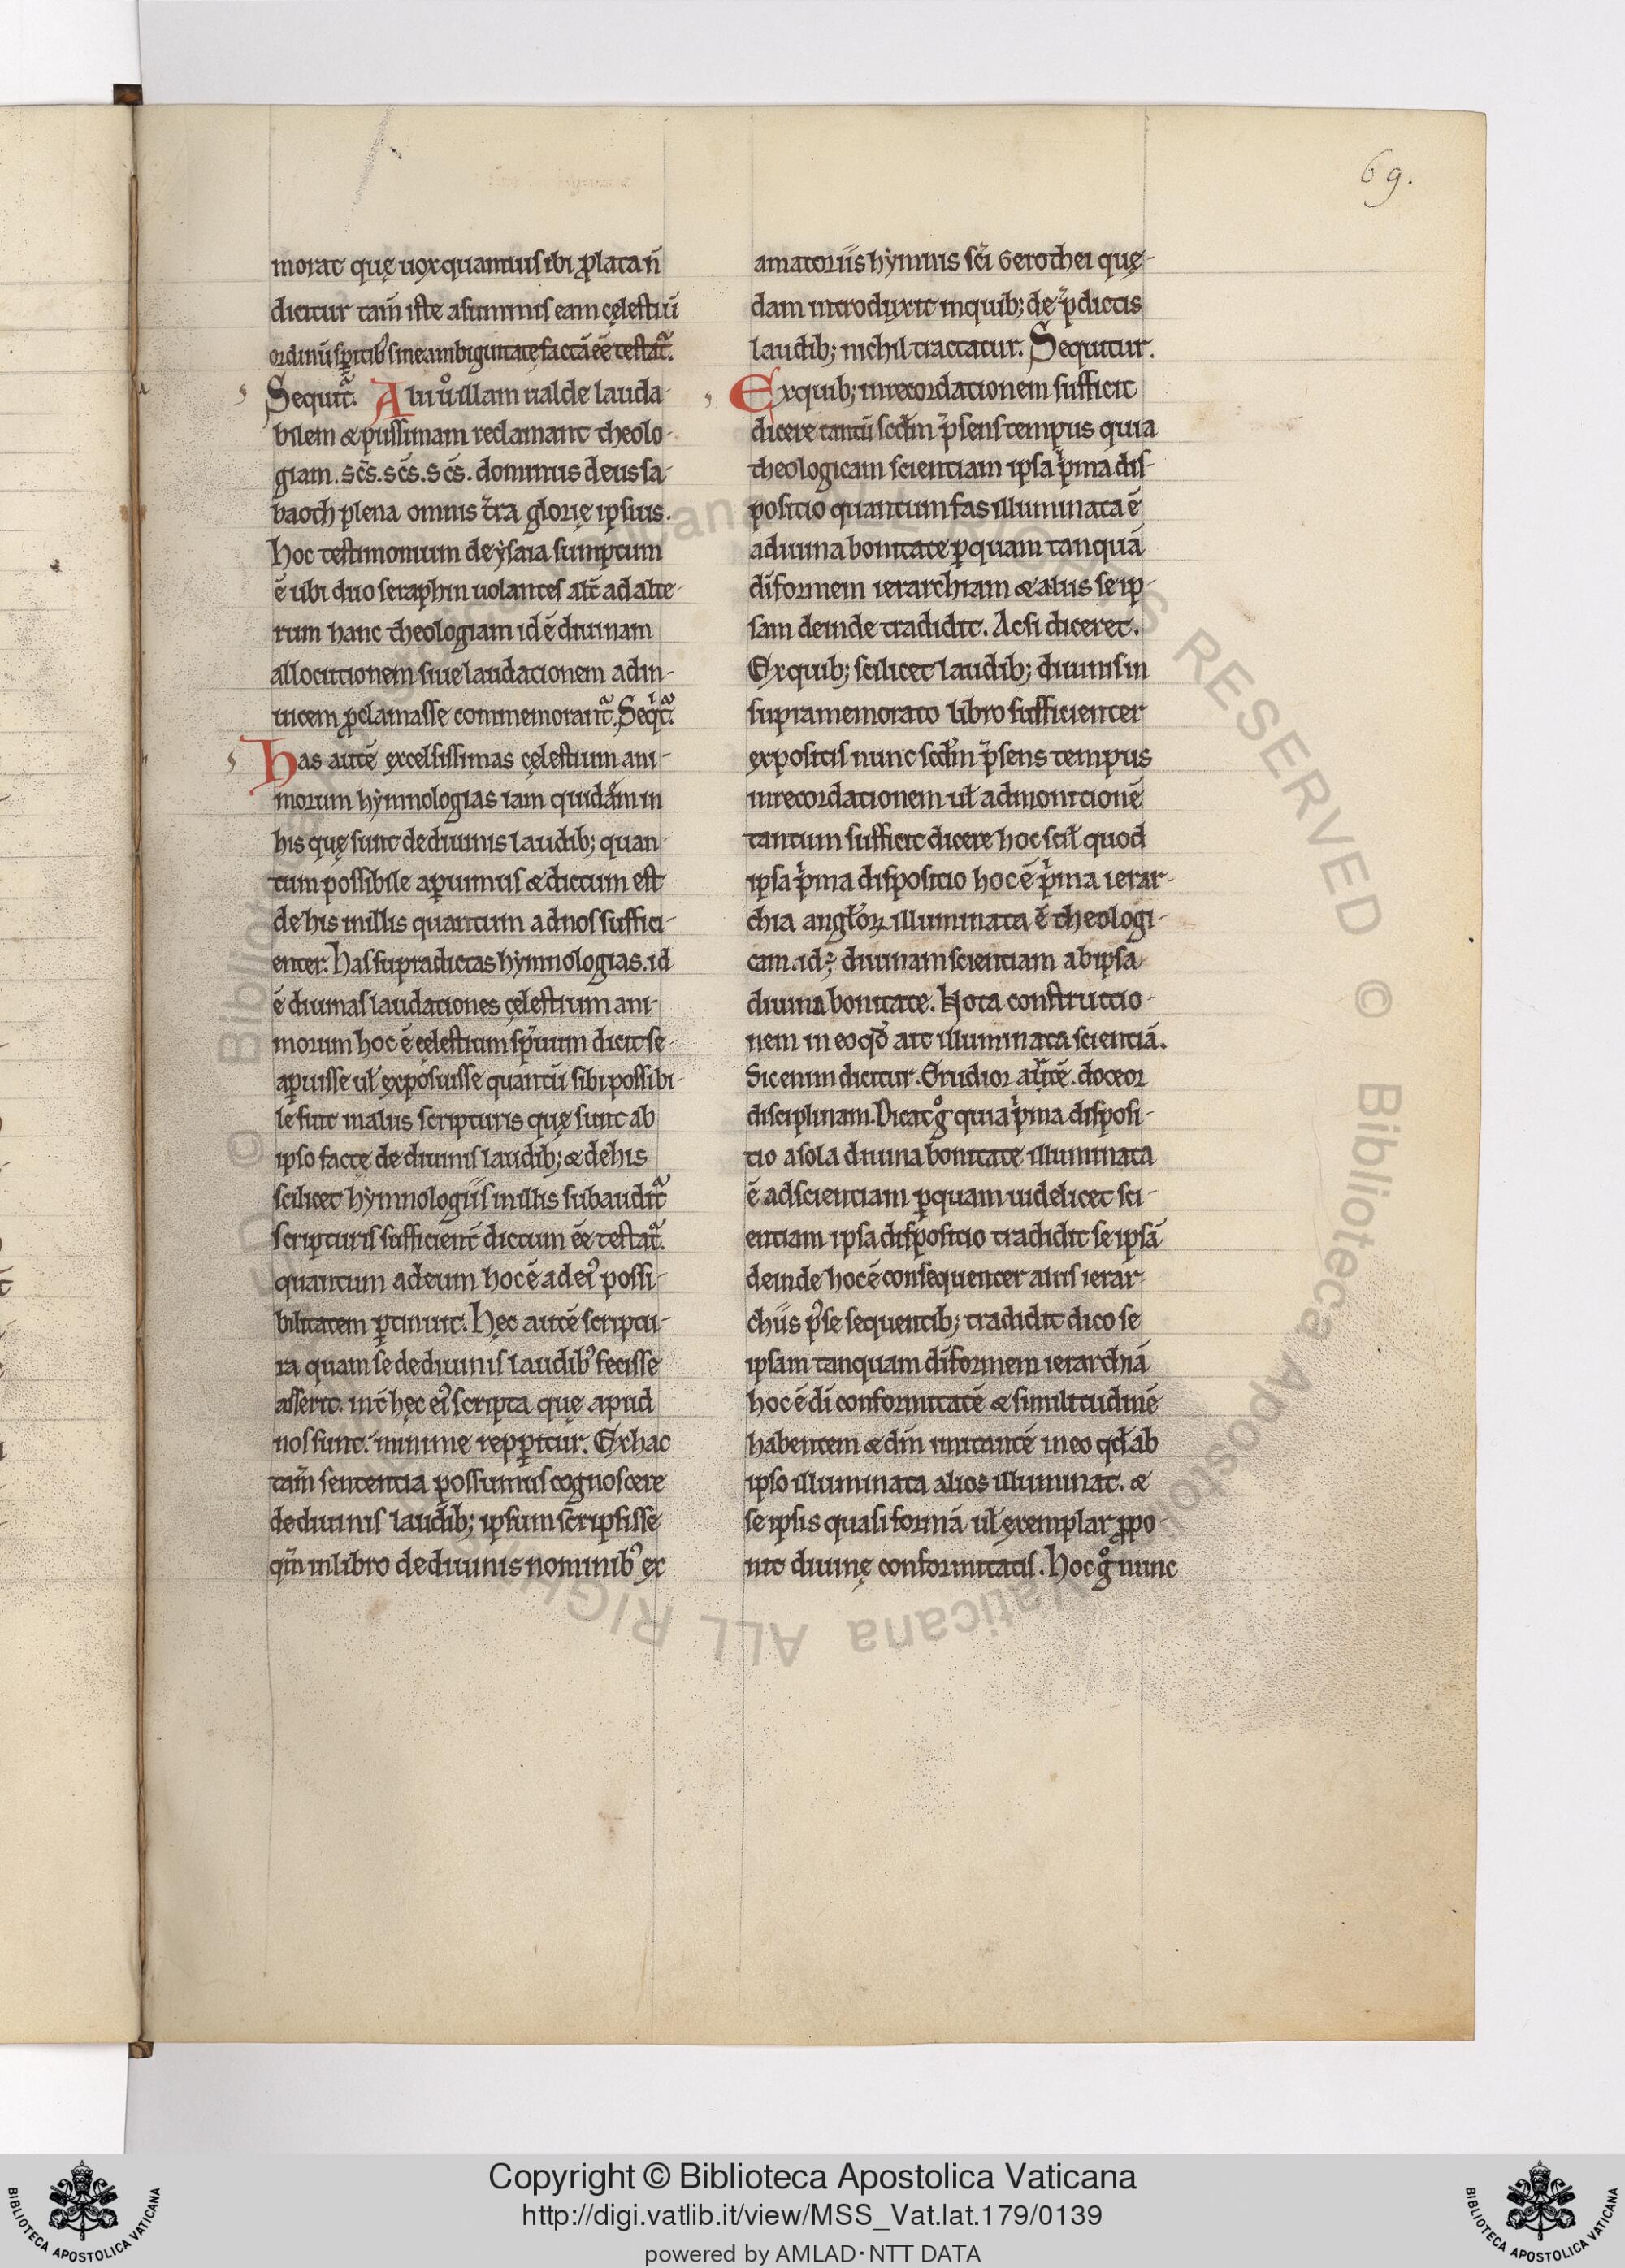 69.
morat quę uox quamuis ibi ꝓlata n̄
dicitur tam̄ iste a summis eam cęlestiū
ordinū spiritib᾿ sine ambiguitate factā eē testat᷑.
Sequit᷑. Alii u͛o illam ualde lauda-
bilem & piissimam reclamant theolo-
giam. sc̄s. sc̄s. sc̄s. dominus deus sa-
baoth plena omnis t̄ra glorię ipsius.
Hoc testimonium de ẏsaia sumptum
ē ubi duo seraphin uolantes alt̄ ad alte-
rum hanc theologiam id ē diuinam
allocutionem siue laudationem ad in-
uicem ꝓclamasse commemorant᷑. Seqⁱt᷑.
Has autē excelsissimas cęlestium ani-
morum hẏmnologias iam quidām in
his quę sunt de diuinis laudib; quan-
tum possibile aꝑuimus & dictum est
de his in illis quantum ad nos suffici-
enter. Has supradictas hẏmnologias. id
ē diuinas laudationes cęlestium ani-
morum hoc ē celestium sp̄uum dicit se
aꝑuisse ul̄ exposuisse quantū sibi possibi-
le fuit in aliis scripturis quę sunt ab
ipso factę de diuinis laudib; & de his
scilicet hẏmnologiis in illis subaudit᷑
scripturis sufficient̄ dictum eē testat᷑.
quantum ad eum hoc ē ad ei᾿ possi-
bilitatem ꝑtinuit. Hęc autē scriptu-
ra quam se de diuinis laudib᾿ fecisse
asserit. int̄ hęc ei᾿ scripta quę apud
nos sunt. minime repꝑitur. Ex hac
tam̄ sententia possumus cognoscere
de diuinis laudib; ipsum scripsisse
qm̄ in libro de diuinis nominib᾿ ex
amatoriis hẏmnis sc̄i Gerothei quę-
dam introduxit in quib; de p̄dictis
laudib; nichil tractatur. Sequitur.
Ex quib; in recordationem sufficit
dicere tantū scd̄m p̄sens tempus quia
theologicam scientiam ipsa pⁱma dis-
positio quantum fas illuminata ē
a diuina bonitate ꝑ quam tanquā
diformem ierarchiam & aliis se ip-
sam deinde tradidit. Ac si diceret.
Ex quib; scilicet laudib; diuinis in
supramemorato libro sufficienter
expositis nunc scd̄m p̄sens tempus
in recordationem ul̄ admonitionē
tantum sufficit dicere hoc scil̄ quod
ipsa pⁱma dispositio hoc ē pⁱma ierar-
chia angl̄oꝝ illuminata ē theologi-
cam. id ÷ diuinam scientiam ab ipsa
diuina bonitate. Nota constructio-
nem in eo qd̄ ait illuminata scientiā.
Sic enim dicitur. Erudior artē. doceor
disciplinam. Dicat gͦ quia pⁱma disposi-
tio a sola diuina bonitate illuminata
ē ad scientiam ꝑ quam uidelicet sci-
entiam ipsa dispositio tradidit se ipsā
deinde hoc ē consequenter aliis ierar-
chiis p᾿ se sequentib; tradidit dico se
ipsam tanquam diformem ierarchiā
hoc ē di conformitatē & similitudinē
habentem & dm̄ imitantē in eo qd̄ ab
ipso illuminata alios illuminat. &
se ipsis quasi formā ul̄ exemplar ꝓpo-
nit diuinę conformitatis. Hoc gͦ nunc
Copyright © Biblioteca Apostolica Vaticana
http://digi.vatlib.it/view/MSS_Vat.lat.179/0139
powered by AMLAD·NTT DATA
BIBLIOTECA APOSTOLICA VATICANA
BIBLIOTECA APOSTOLICA VATICANA